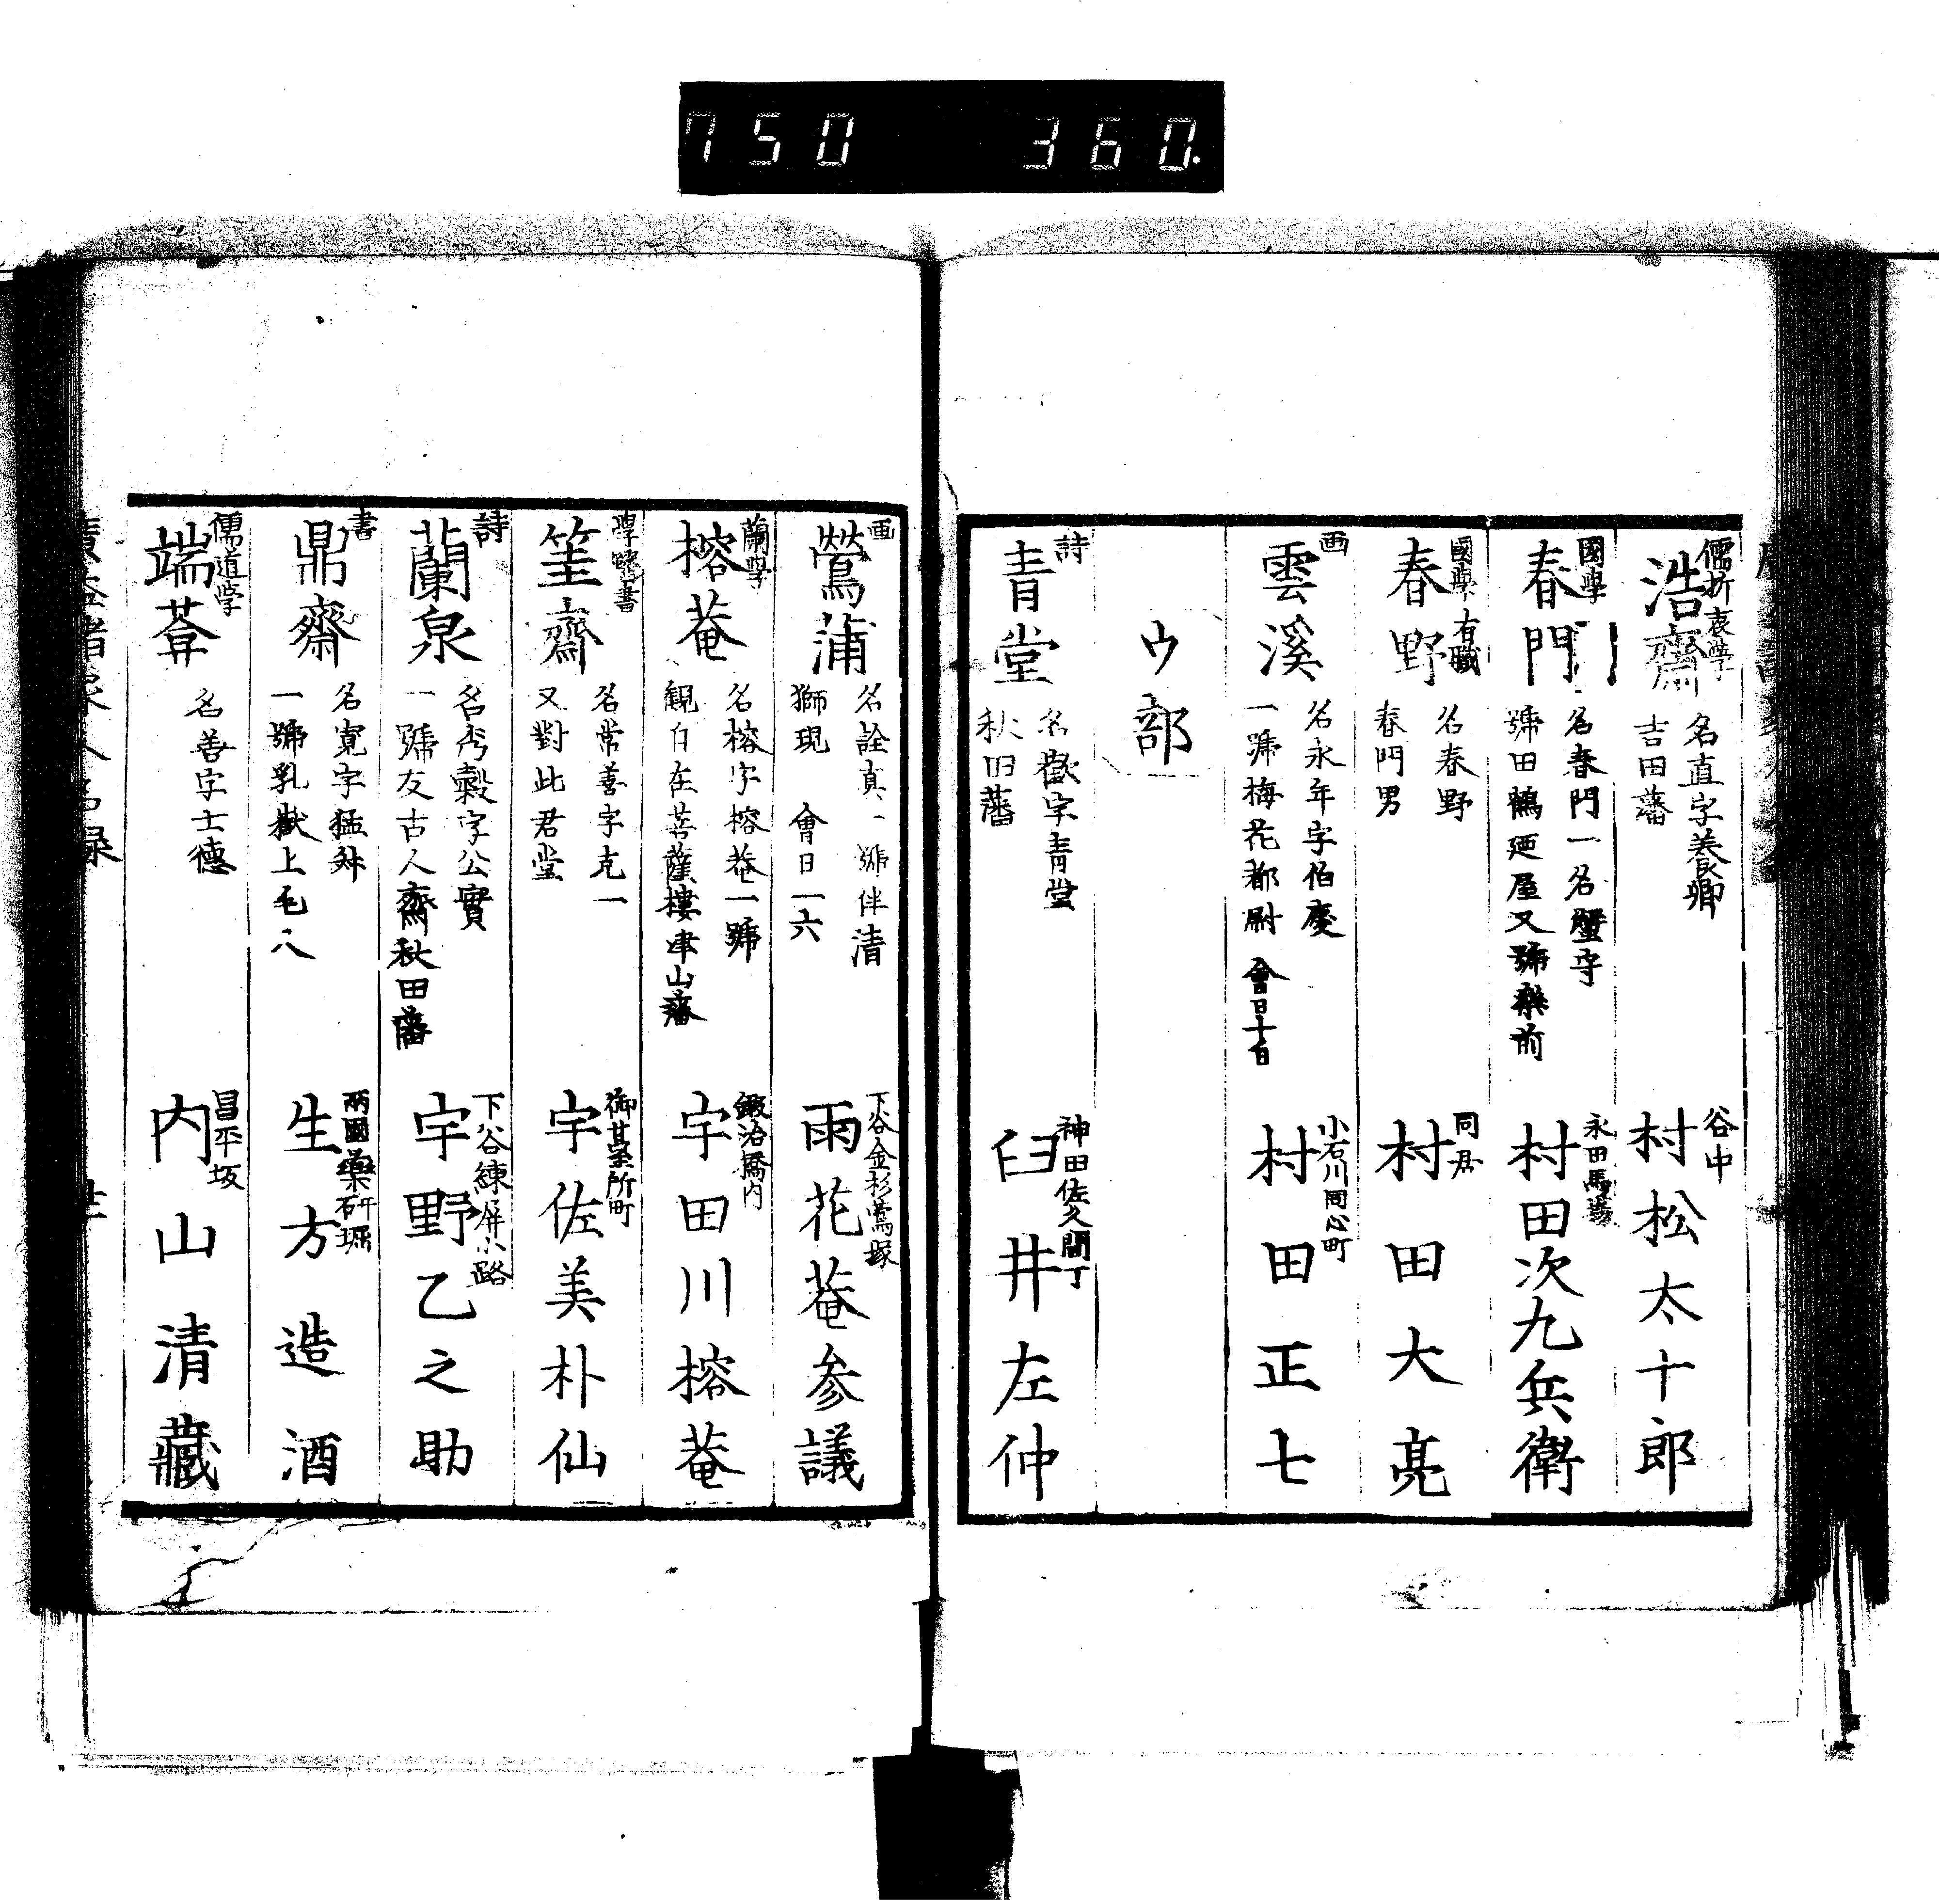 750 360.
儒折衷學
浩齋
名直字養卿
吉田藩
谷中
村松太十郎
國學
春門
名春門一名蟹守
號田鶴廼屋又號樂前
永田馬場
村田次九兵衛
國學有職
春野
名春野
春門男
同居
村田大亮
画
雲溪
名永年字伯慶
一號梅花都尉 會日十七日
小石川同心町
村田正七
ウ部
詩
青堂
名歡字青堂
秋田藩
神田佐久間丁
臼井左仲
画
鶯蒲
名詮真一號伴清
獅現 會日一六
下谷金杉鶯塚
雨花菴參議
蘭學
榕菴
名榕字榕菴一號
觀自在菩薩樓津山藩
鍛冶橋内
宇田川榕菴
學醫書
筀齋
名常善字克一
又對此君堂
御臺所町
宇佐美朴仙
詩
蘭泉
名秀穀字公實
一號友古人齋秋田藩
下谷練屏小路
宇野乙之助
書
鼎齋
名寛字猛卿
一號乳嶽上毛人
兩國藥研堀
生方造酒
儒道学
端菴
名善字士德
昌平坂
内山清藏
廣益諸家人名録